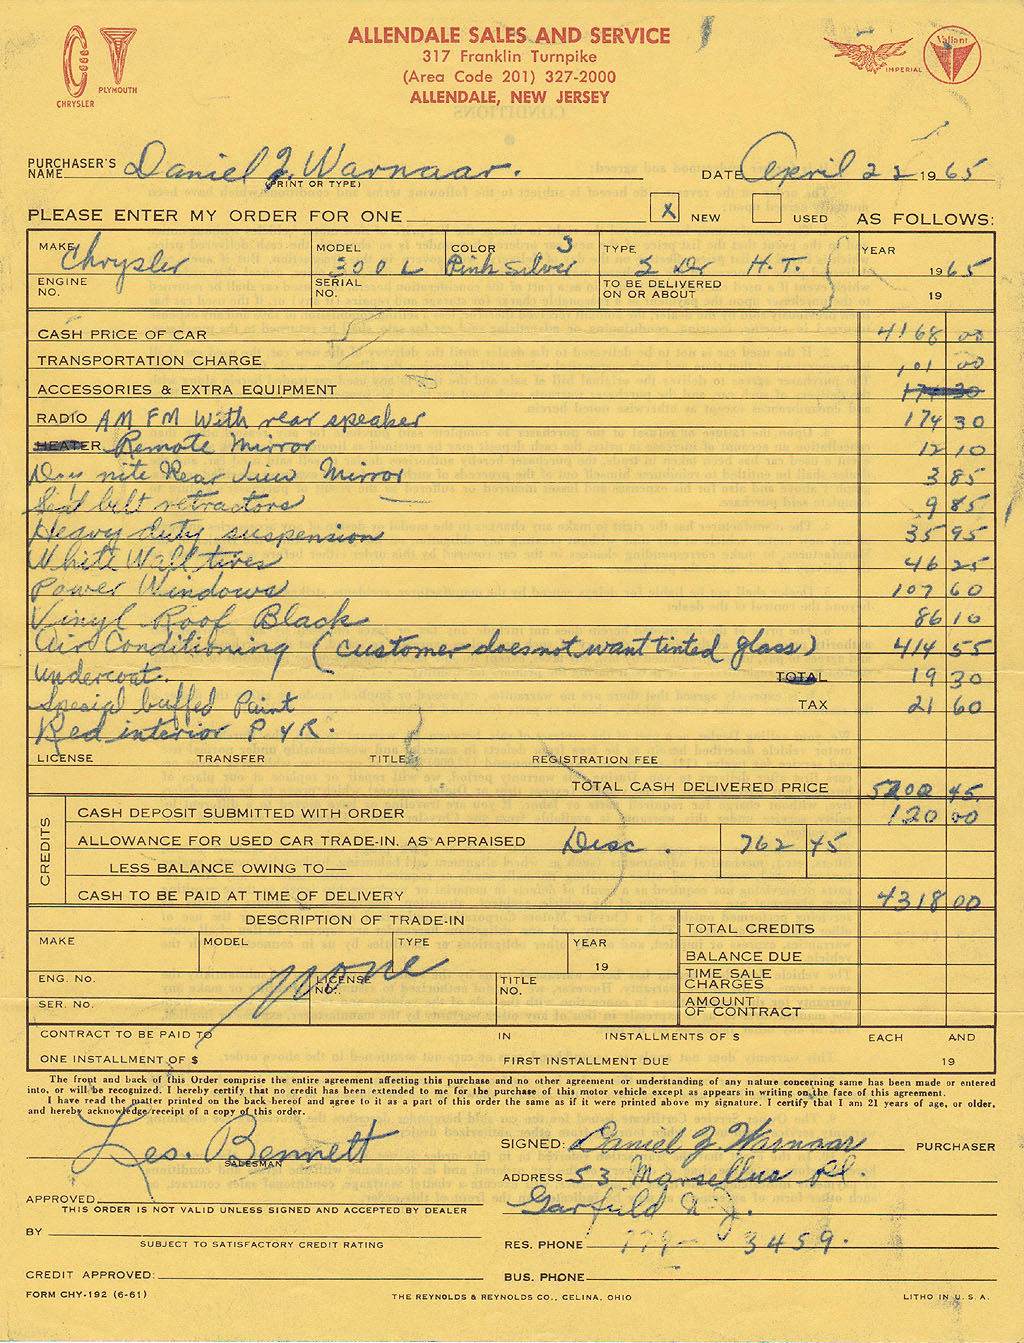 ALLENDALE SALES AND SERVICE
317 Franklin Turnpike
(Area Code 201) 327-2000
ALLENDALE, NEW JERSEY
CHRYSLER
PLYMOUTH
IMPERIAL
Valiant
PURCHASER'S NAME Daniel J. Warnaar. DATE April 22 1965
(PRINT OR TYPE)
PLEASE ENTER MY ORDER FOR ONE X NEW USED AS FOLLOWS:
MAKE Chrysler MODEL 300 L COLOR 3 Pink Silver TYPE 2 Dr H.T. YEAR 1965
ENGINE NO. SERIAL NO. TO BE DELIVERED ON OR ABOUT 19
CASH PRICE OF CAR 4168 00
TRANSPORTATION CHARGE 101 00
ACCESSORIES & EXTRA EQUIPMENT 174 30
RADIO AM FM With rear speaker 174 30
HEATER Remote Mirror 12 10
Day nite Rear View Mirror 3 85
Seat belt retractors 9 85
Heavy duty suspension 35 95
White Wall tires 46 25
Power Windows 107 60
Vinyl Roof Black 86 10
Air Conditioning (customer does not want tinted glass) 414 55
undercoat. TOTAL 19 30
Special buffed Paint TAX 21 60
Red interior P4R.
LICENSE TRANSFER TITLE REGISTRATION FEE
TOTAL CASH DELIVERED PRICE 5200 45
CREDITS
CASH DEPOSIT SUBMITTED WITH ORDER 120 00
ALLOWANCE FOR USED CAR TRADE-IN, AS APPRAISED Disc. 762 45
LESS BALANCE OWING TO—
CASH TO BE PAID AT TIME OF DELIVERY 4318 00
DESCRIPTION OF TRADE-IN TOTAL CREDITS
MAKE MODEL TYPE YEAR 19 BALANCE DUE
none
ENG. No. LICENSE NO. TITLE NO. TIME SALE CHARGES
SER. No. AMOUNT OF CONTRACT
CONTRACT TO BE PAID TO IN INSTALLMENTS OF $ EACH AND
ONE INSTALLMENT OF $ FIRST INSTALLMENT DUE 19
The front and back of this Order comprise the entire agreement affecting this purchase and no other agreement or understanding of any nature concerning same has been made or entered
into, or will be recognized. I hereby certify that no credit has been extended to me for the purchase of this motor vehicle except as appears in writing on the face of this agreement.
I have read the matter printed on the back hereof and agree to it as a part of this order the same as if it were printed above my signature. I certify that I am 21 years of age, or older,
and hereby acknowledge receipt of a copy of this order.
Les. Bennett
SALESMAN
SIGNED: Daniel J. Warnaar PURCHASER
ADDRESS 53 Marsellus Pl.
APPROVED
Garfield N.J.
THIS ORDER IS NOT VALID UNLESS SIGNED AND ACCEPTED BY DEALER
BY
RES. PHONE 779- 3459.
SUBJECT TO SATISFACTORY CREDIT RATING
CREDIT APPROVED: BUS. PHONE
FORM CHY-192 (6-61) THE REYNOLDS & REYNOLDS CO., CELINA, OHIO LITHO IN U.S.A.